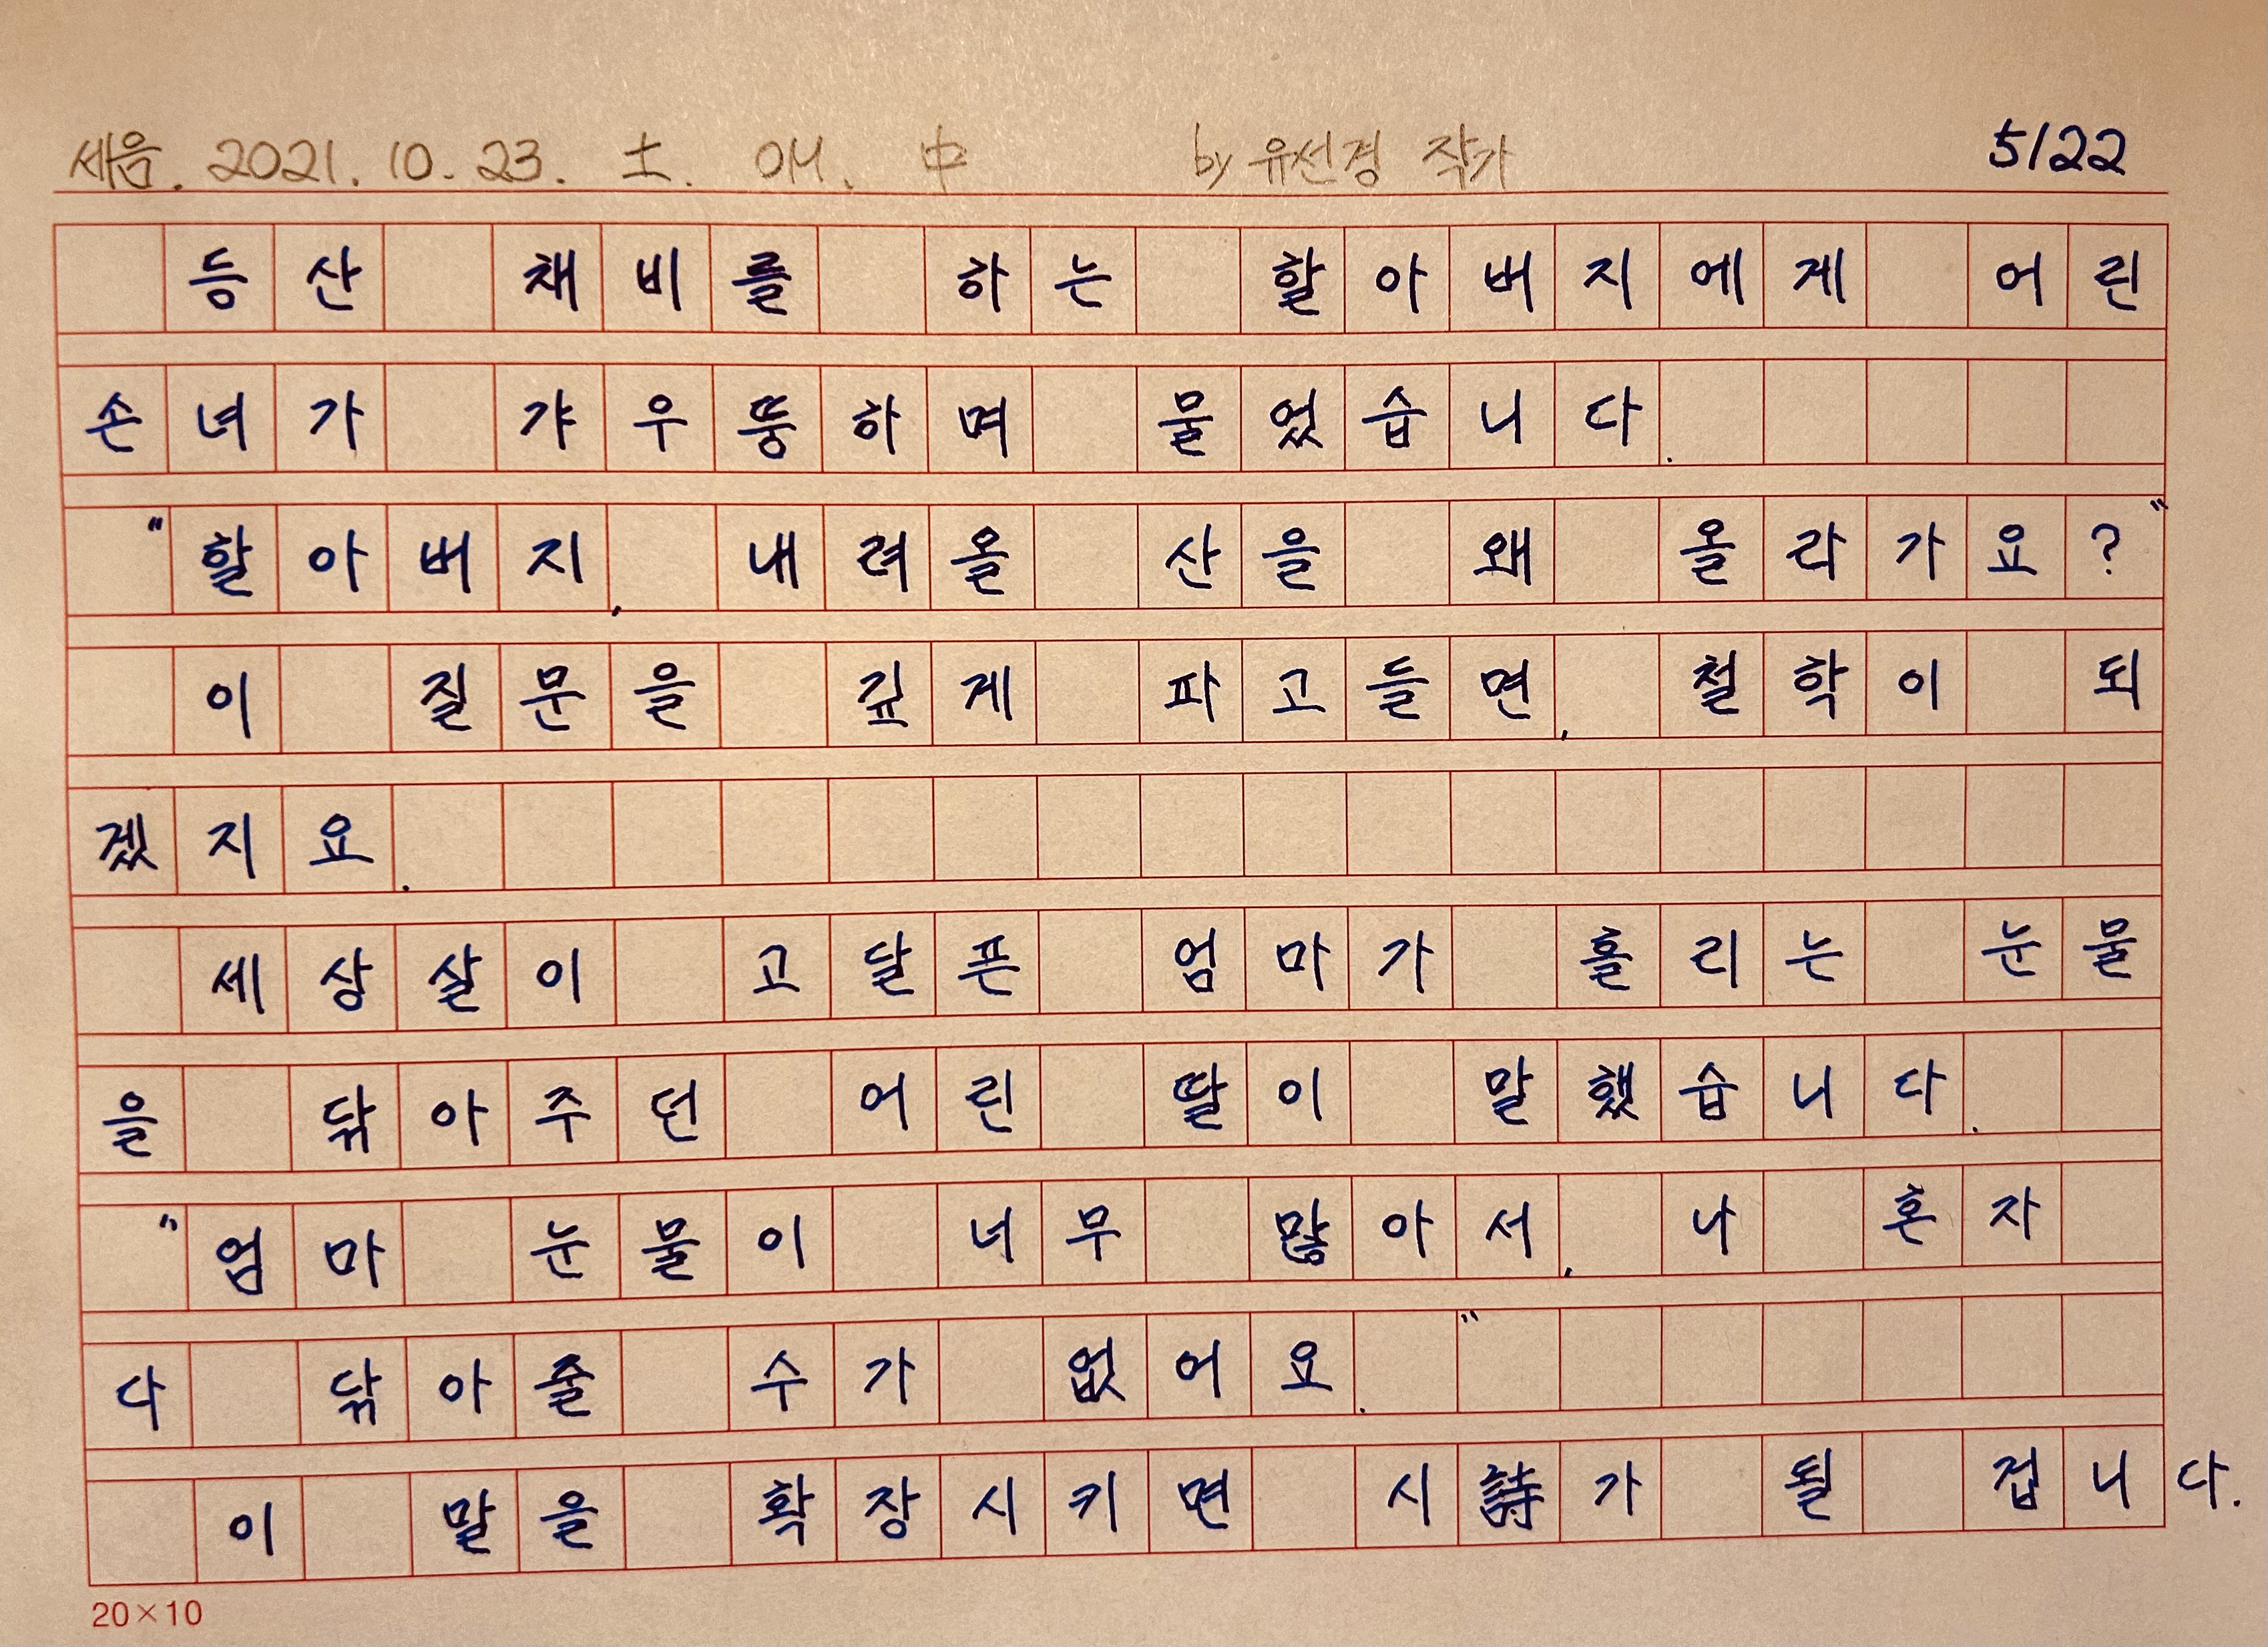 세음. 2021. 10. 23. 土. 애. 中 by 유선경 작가 5/22
등산 채비를 하는 할아버지에게 어린
손녀가 갸우뚱하며 물었습니다.
"할아버지, 내려올 산을 왜 올라가요?"
이 질문을 깊게 파고들면, 철학이 되
겠지요.
세상살이 고달픈 엄마가 흘리는 눈물
을 닦아주던 어린 딸이 말했습니다.
"엄마 눈물이 너무 많아서, 나 혼자
다 닦아줄 수가 없어요."
이 말을 확장시키면 시詩가 될 겁니다.
20×10